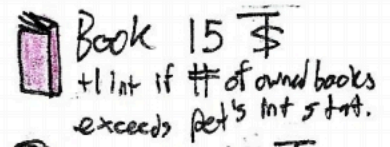 Book 15 $
+1 int if # of owned books
exceeds pet's int stat.